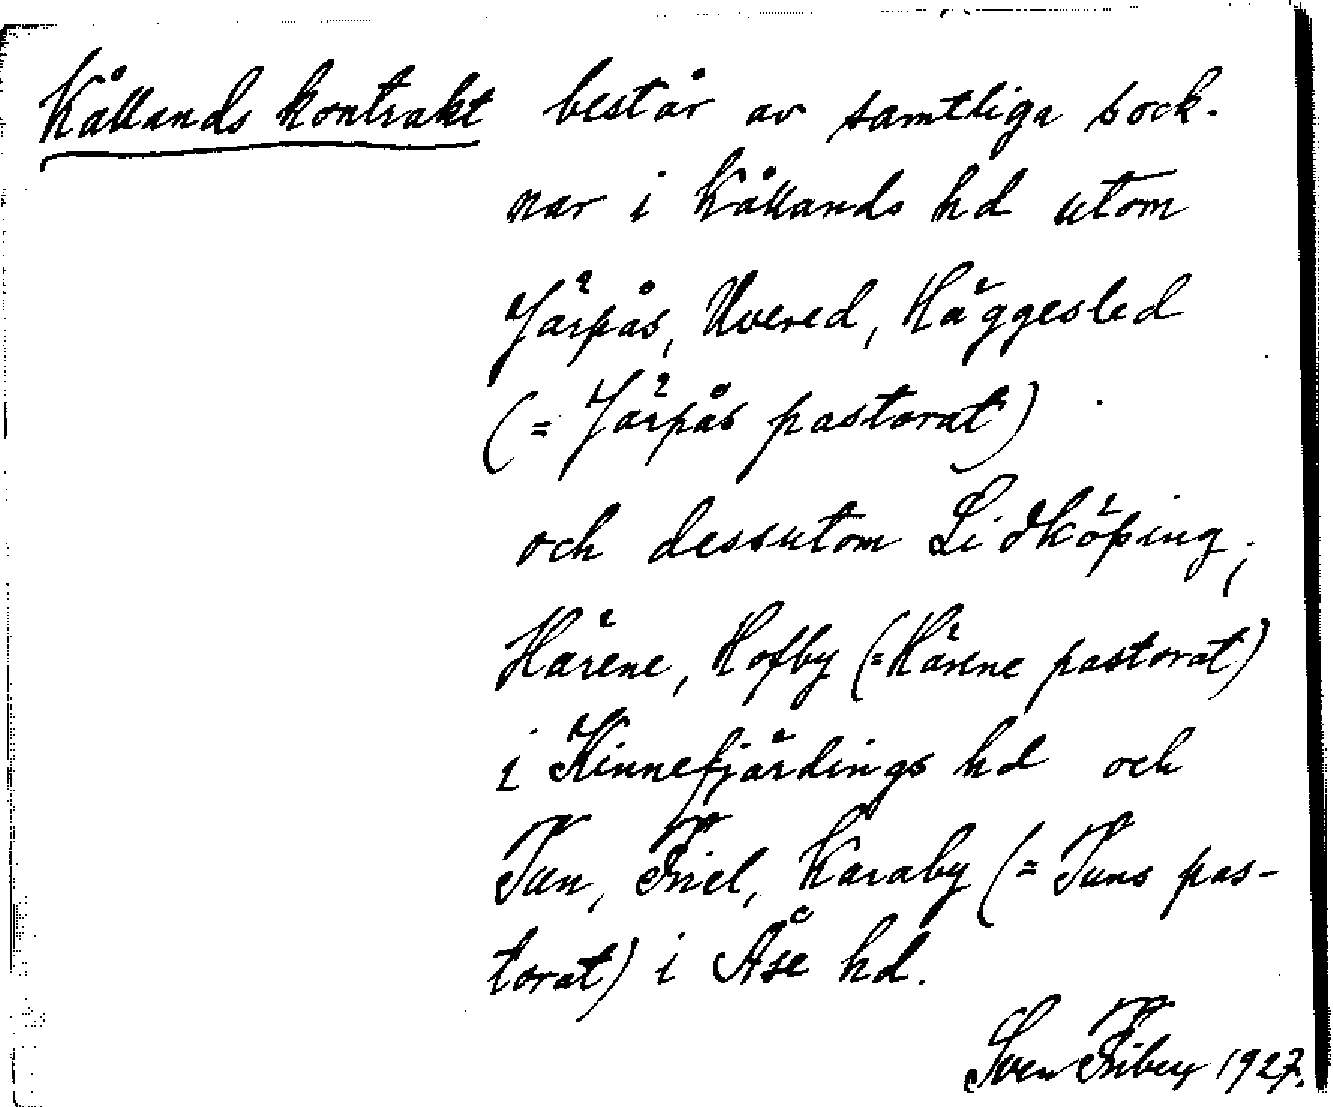 Kållands kontrakt består av samtliga sock-
nar i Kållands hd utom
Järpås, Uvered, Häggesled
(= Järpås pastorat)
och dessutom Lidköping,
Härene, Hofby (=Härene pastorat)
i Kinnefjärdings hd och
Tun, Friel, Karaby (= Tuns pas-
torat) i Åse hd.
Sven Fribey 1927.